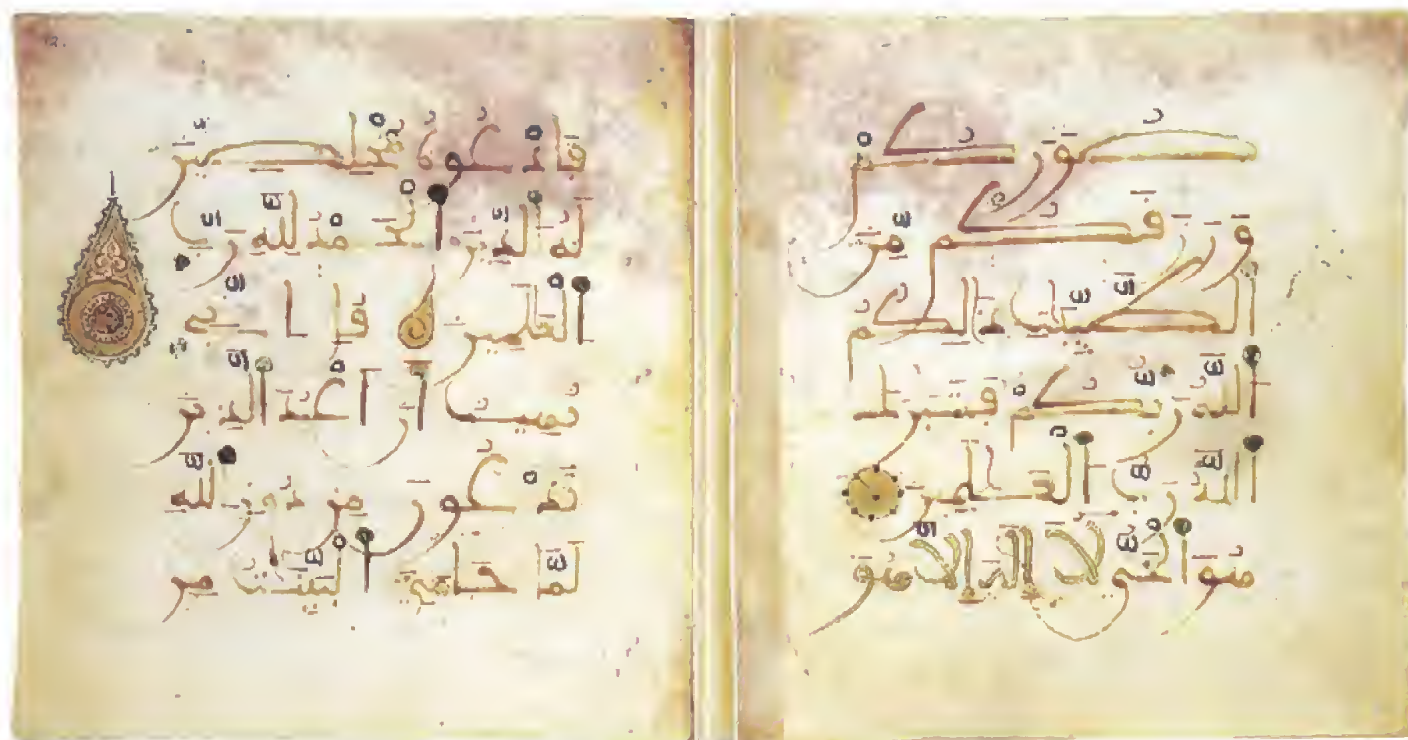 صوركم
ورزقكم من
الطيبت ذلكم
الله ربكم فتبرك
الله رب العلمين
هو الحي لا اله الا هو
فادعوه مخلصين
له الدين الحمد لله رب
العلمين قل اني
نهيت ان اعبد الذين
تدعون من دون الله
لما جاني البينت من